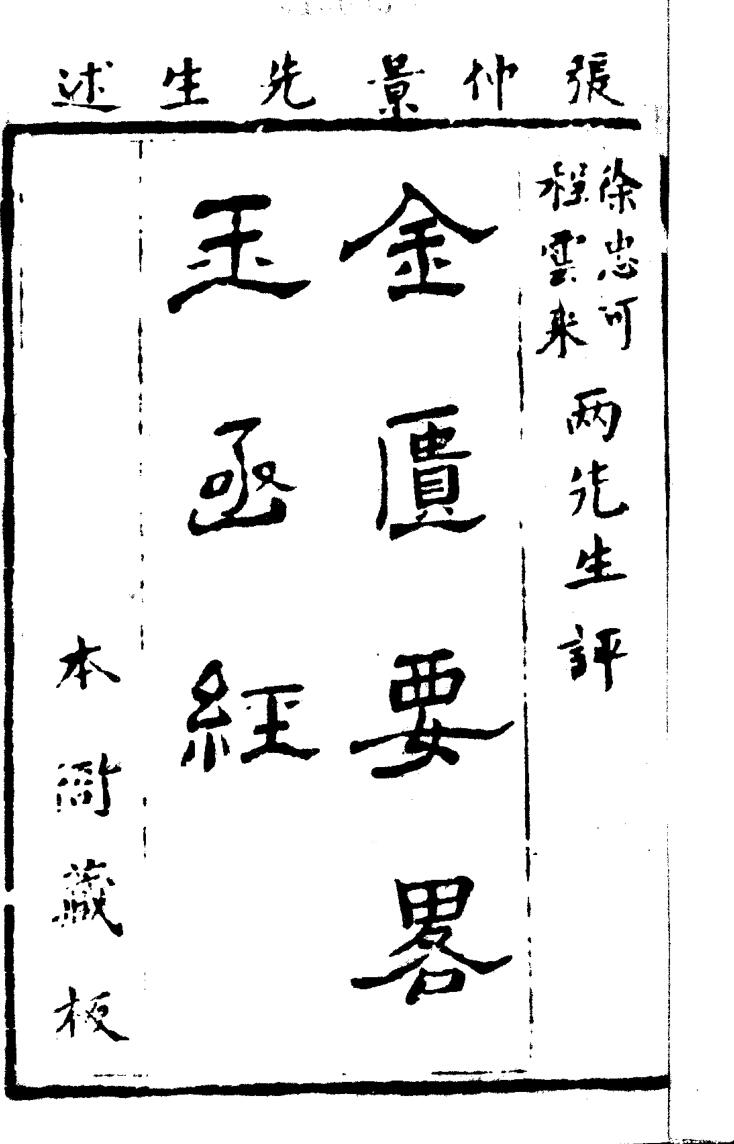 張仲景先生述
徐忠可
程雲來
两先生評
金匱要畧
玉函經
本衙藏板